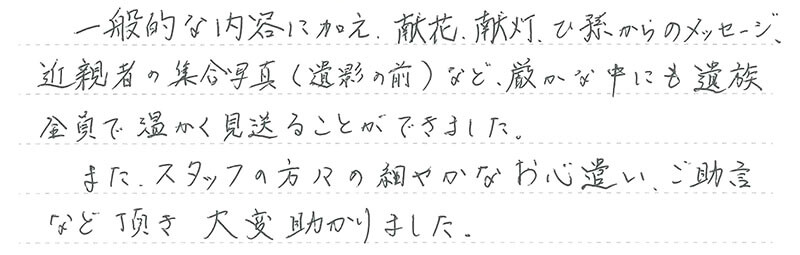 一般的な内容に加え、献花、献灯、ひ孫からのメッセージ、
近親者の集合写真(遺影の前)など、厳かな中にも遺族
全員で温かく見送ることができました。
また、スタッフの方々の細やかなお心遣い、ご助言
など頂き 大変助かりました。